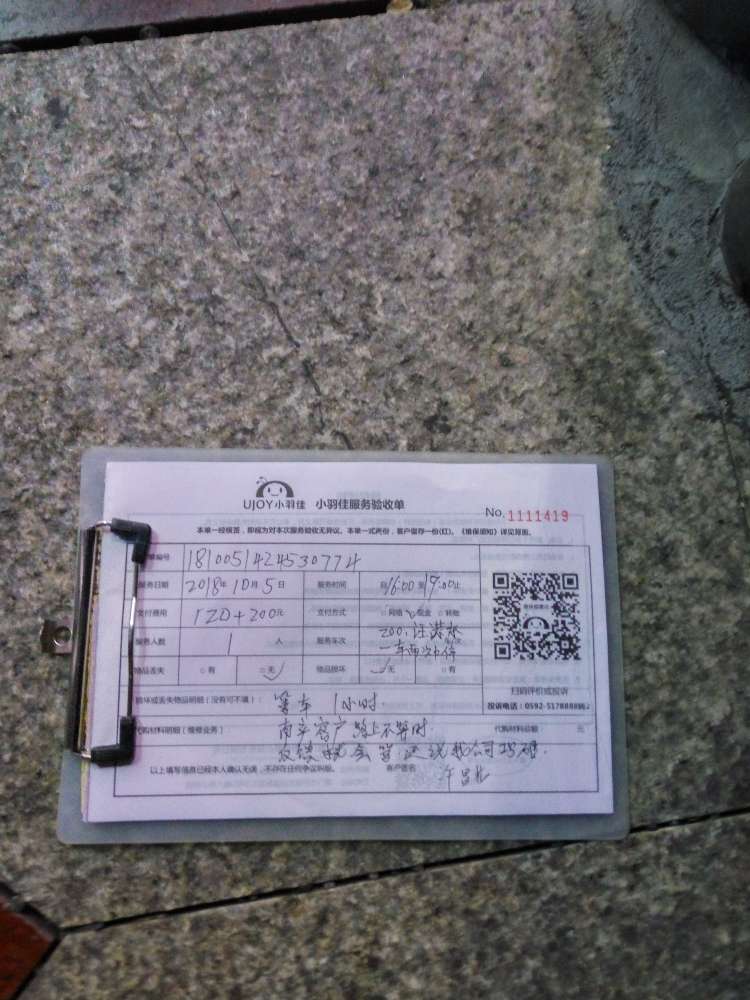 UJOY小羽佳 小羽佳服务验收单
No. 1111419
本单一经核签，即视为对本次服务验收无异议。本单一式两份，客户留存一份(红)。《维保须知》详见背面。
单编号 1810051424530774
服务日期 2018年10月5日 服务时间 自16:00至19:00止
支付费用 120+200元 支付方式 网络 现金 转账
服务人数 1 人 服务车次 200:汪洪水
一车两次
物品丢失 有 无 物品损坏 无 有
扫码评价或投诉
投诉电话：0592-5178888转2
损坏或丢失物品明细（没有可不填）： 等车 1小时
代购材料明细【维修业务】 南平客户路上不算时 代购材料总额 元
以上填写信息已经本人确认无误，不存在任何争议纠纷。 客户签名